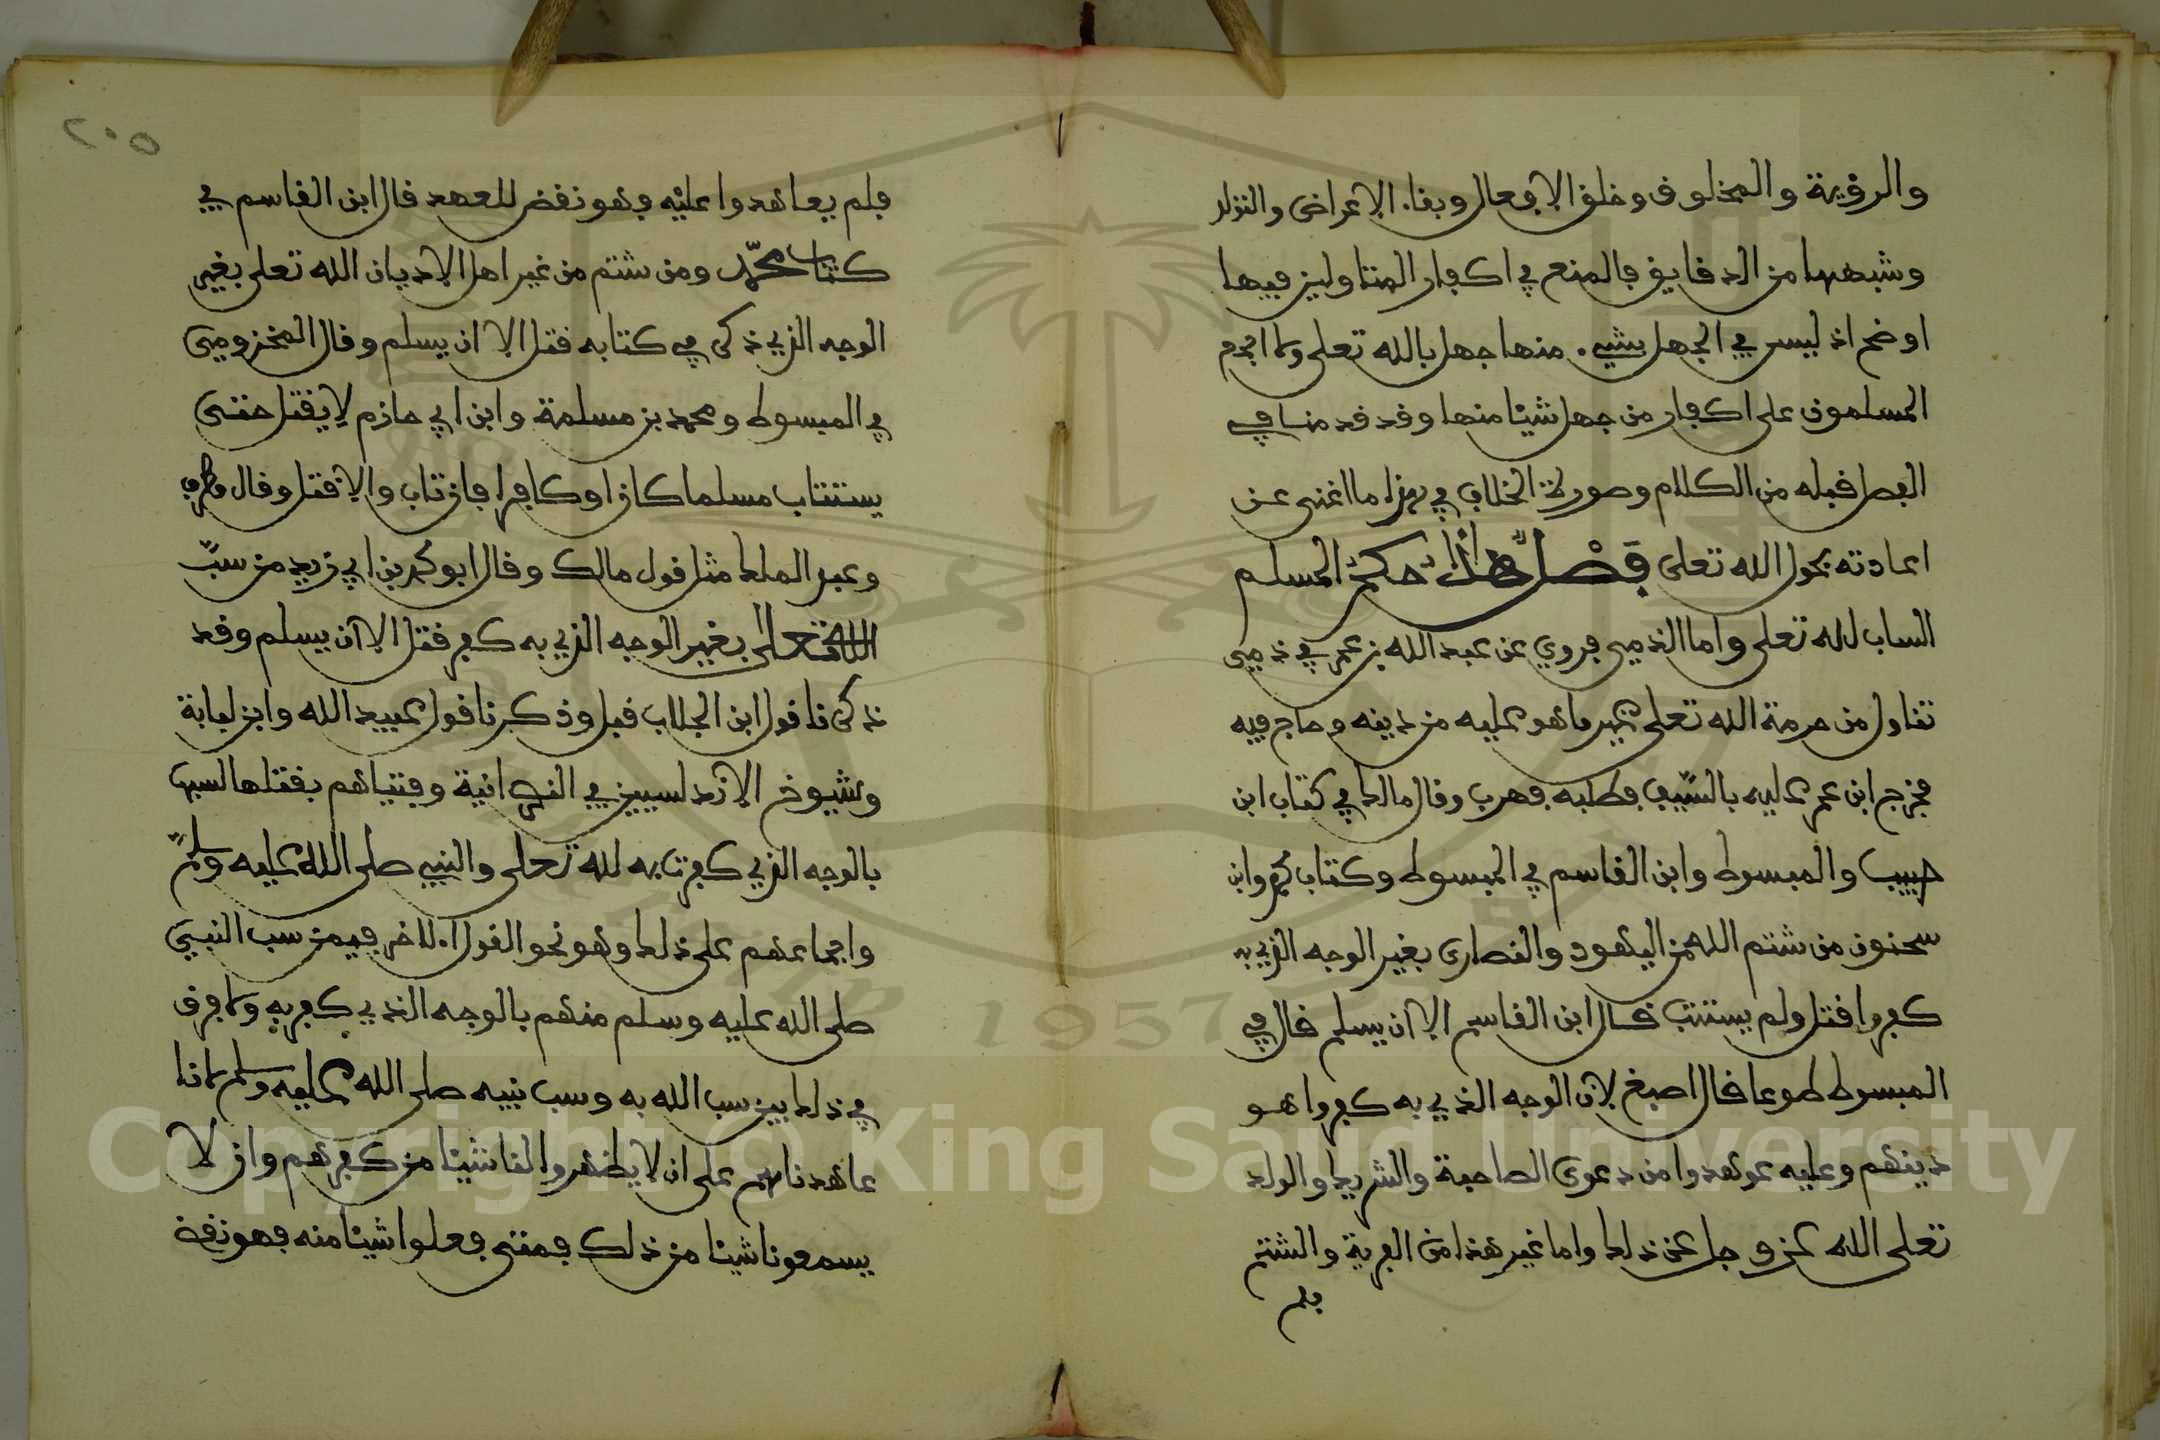 والرؤية والمخلوق وخلق الافعال وبقاء الاعراض والتولد
وشبهها من الدقايق فالمنع في اكفار المتاولين فيها
اوضح اذ ليس في الجهل بشيء منها جهل بالله تعلى ولا اجمع
المسلمون على اكفار من جهل شيئا منها وقد قدمنا في
الفصل قبله من الكلام وصورة الخلاف في هذا ما اغنى عن
اعادته بحول الله تعلى فصل هذا حكم المسلم
الساب لله تعلى واما الذمي فروي عن عبد الله بن عمر في ذمي
تناول من حرمة الله تعلى غير ما هو عليه من دينه وحاج فيه
فخرج ابن عمر عليه بالسيف فطلبه فهرب وقال مالك في كتاب ابن
حبيب والمبسوط وابن القاسم في المبسوط وكتاب محمد وابن
سحنون من شتم الله من اليهود والنصارى بغير الوجه الذي به
كفروا قتل ولم يستتب قال ابن القاسم الا ان يسلم قال في
المبسوط طوعا قال اصبغ لان الوجه الذي به كفروا هو
دينهم وعليه عوهدوا من دعوى الصاحبة والشريك والولد
تعلى الله عز وجل عن ذلك واما غير هذا من الفرية والشتم
فلم
٢٠٥
فلم يعاهدوا عليه وهو نقض للعهد قال ابن القاسم في
كتاب محمد ومن شتم من غير اهل الاديان الله تعلى بغير
الوجه الذي ذكر في كتابه قتل الا ان يسلم وقال المخزومي
في المبسوط ومحمد بن مسلمة وابن ابي حازم لا يقتل حتى
يستتاب مسلما كان او كافرا فان تاب والا قتل وقال مطرف
وعبد الملك مثل قول مالك وقال ابو محمد بن ابي زيد من سب
الله تعلى بغير الوجه الذي به كفر قتل الا ان يسلم وقد
ذكرنا قول ابن الجلاب قبل وذكرنا قول عبيد الله وابن لبابة
وشيوخ الاندلسيين في النصرانية وفتياهم بقتلها لسبها
بالوجه الذي كفرت به لله تعلى والنبي صلى الله عليه وسلم
واجماعهم على ذلك وهو نحو القول الاخر فيمن سب النبي
صلى الله عليه وسلم منهم بالوجه الذي كفر به ولا فرق
في ذلك بين سب الله به وسب نبيه صلى الله عليه وسلم لانا
عاهدناهم على ان لا يظهروا لنا شيئا من كفرهم وان لا
يسمعونا شيئا من ذلك فمتى فعلوا شيئا منه فهو نقض
Copyright © King Saud University
1957